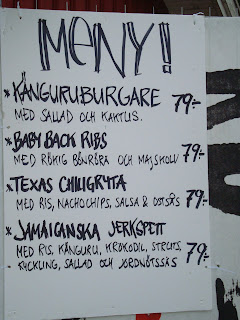 MENY!
* KÄNGURUBURGARE 79:-
MED SALLAD OCH KAKTUS.
* BABY BACK RIBS 79:-
MED RÖKIG BÖNRÖRA OCH MAJSKOLV
* TEXAS CHILIGRYTA 79:-
MED RIS, NACHOCHIPS, SALSA & OSTSÅS
* JAMAICANSKA JERKSPETT 79:-
MED RIS, KÄNGURU, KROKODIL, STRUTS,
KYCKLING, SALLAD OCH JORDNÖTSSÅS